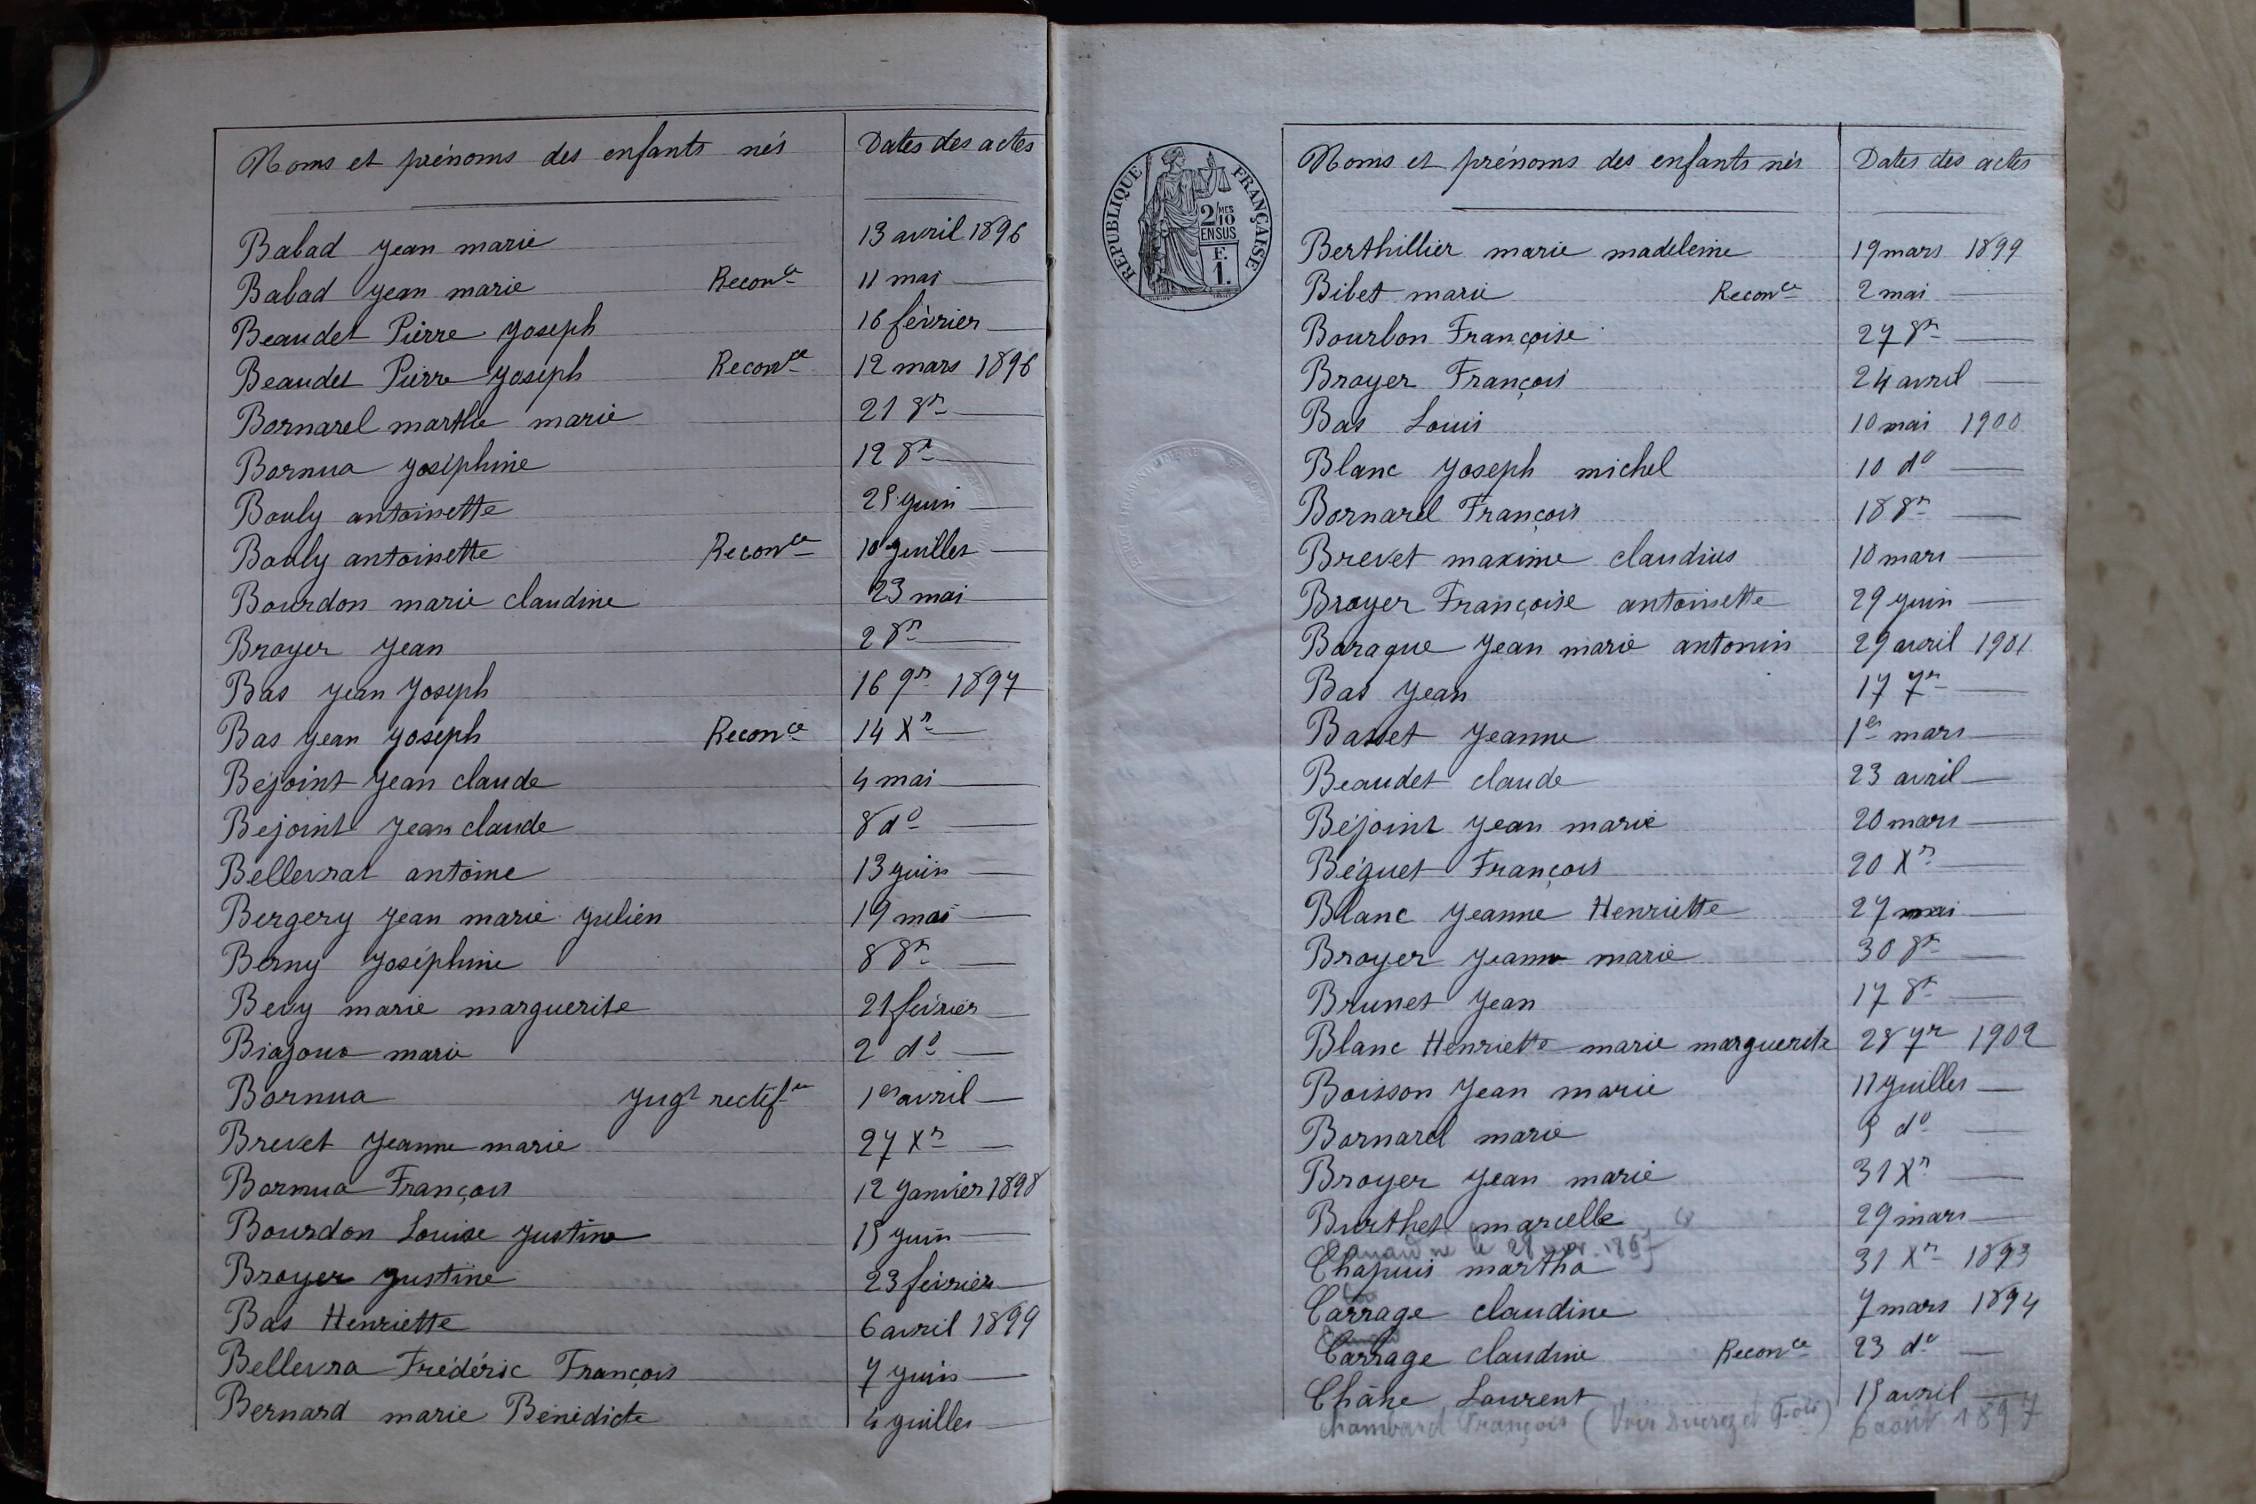 Noms et prénoms des enfants nés Dates des actes
Babad Jean marie 13 avril 1896
Babad Jean marie Reconce 11 mai
Beaudet Pierre Joseph 16 février
Beaudet Pierre Joseph Reconce 12 mars 1896
Bornarel marthe marie 21 8re
Bornua Joséphine 12 8re
Bouly antoinette 25 Juin
Bouly antoinette Reconce 10 Juillet
Bourdon marie claudine 23 mai
Broyer Jean 2 8re
Bas Jean Joseph 16 9re 1897
Bas Jean Joseph Reconce 14 Xre
Béjoint Jean claude 4 mai
Béjoint Jean claude 8 do
Bellevrat antoine 13 Juin
Bergery Jean marie Julien 19 mai
Berny Joséphine 8 8re
Bevy marie marguerite 21 février
marie 2 do
Bornua Jugt rectif 1er avril
Brevet Jeanne marie 27 Xre
Bornua François 12 Janvier 1898
Bourdon Louise Justine 15 Juin
Broyer Justine 23 février
Bas Henriette 6 avril 1899
Bellevra Frédéric François 7 Juin
Bernard marie Bénédicte 4 Juillet
RÉPUBLIQUE FRANÇAISE
2/10
EN SUS
F.
1.
Noms et prénoms des enfants nés Dates des actes
Berthillier marie madeleine 19 mars 1899
Bibet marie Reconce 2 mai
Bourbon Françoise 27 8re
Broyer François 24 avril
Bas Louis 10 mai 1900
Blanc Joseph michel 10 do
Bornarel François 18 8re
Brevet maxime claudius 10 mars
Broyer Françoise antoinette 29 Juin
Baraque Jean marie antonin 29 avril 1901
Bas Jean 17 7re
Basset Jeanne 1er mars
Beaudet claude 23 avril
Béjoint Jean marie 20 mars
Béguet François 20 Xre
Blanc Jeanne Henriette 27 mai
Broyer Jeanne marie 30 8re
Brunet Jean 17 8re
Blanc Henriette marie marguerite 28 7re 1902
Boisson Jean marie 11 Juillet
Bornarel marie 5 do
Broyer Jean marie 31 Xre
Burthet marcelle 29 mars
Chapuis martha 31 Xre 1893
Carrage claudine 7 mars 1894
Carrage claudine Reconce 23 do
Châne Laurent 15 avril
Chambard François (Voir 6 août 1897